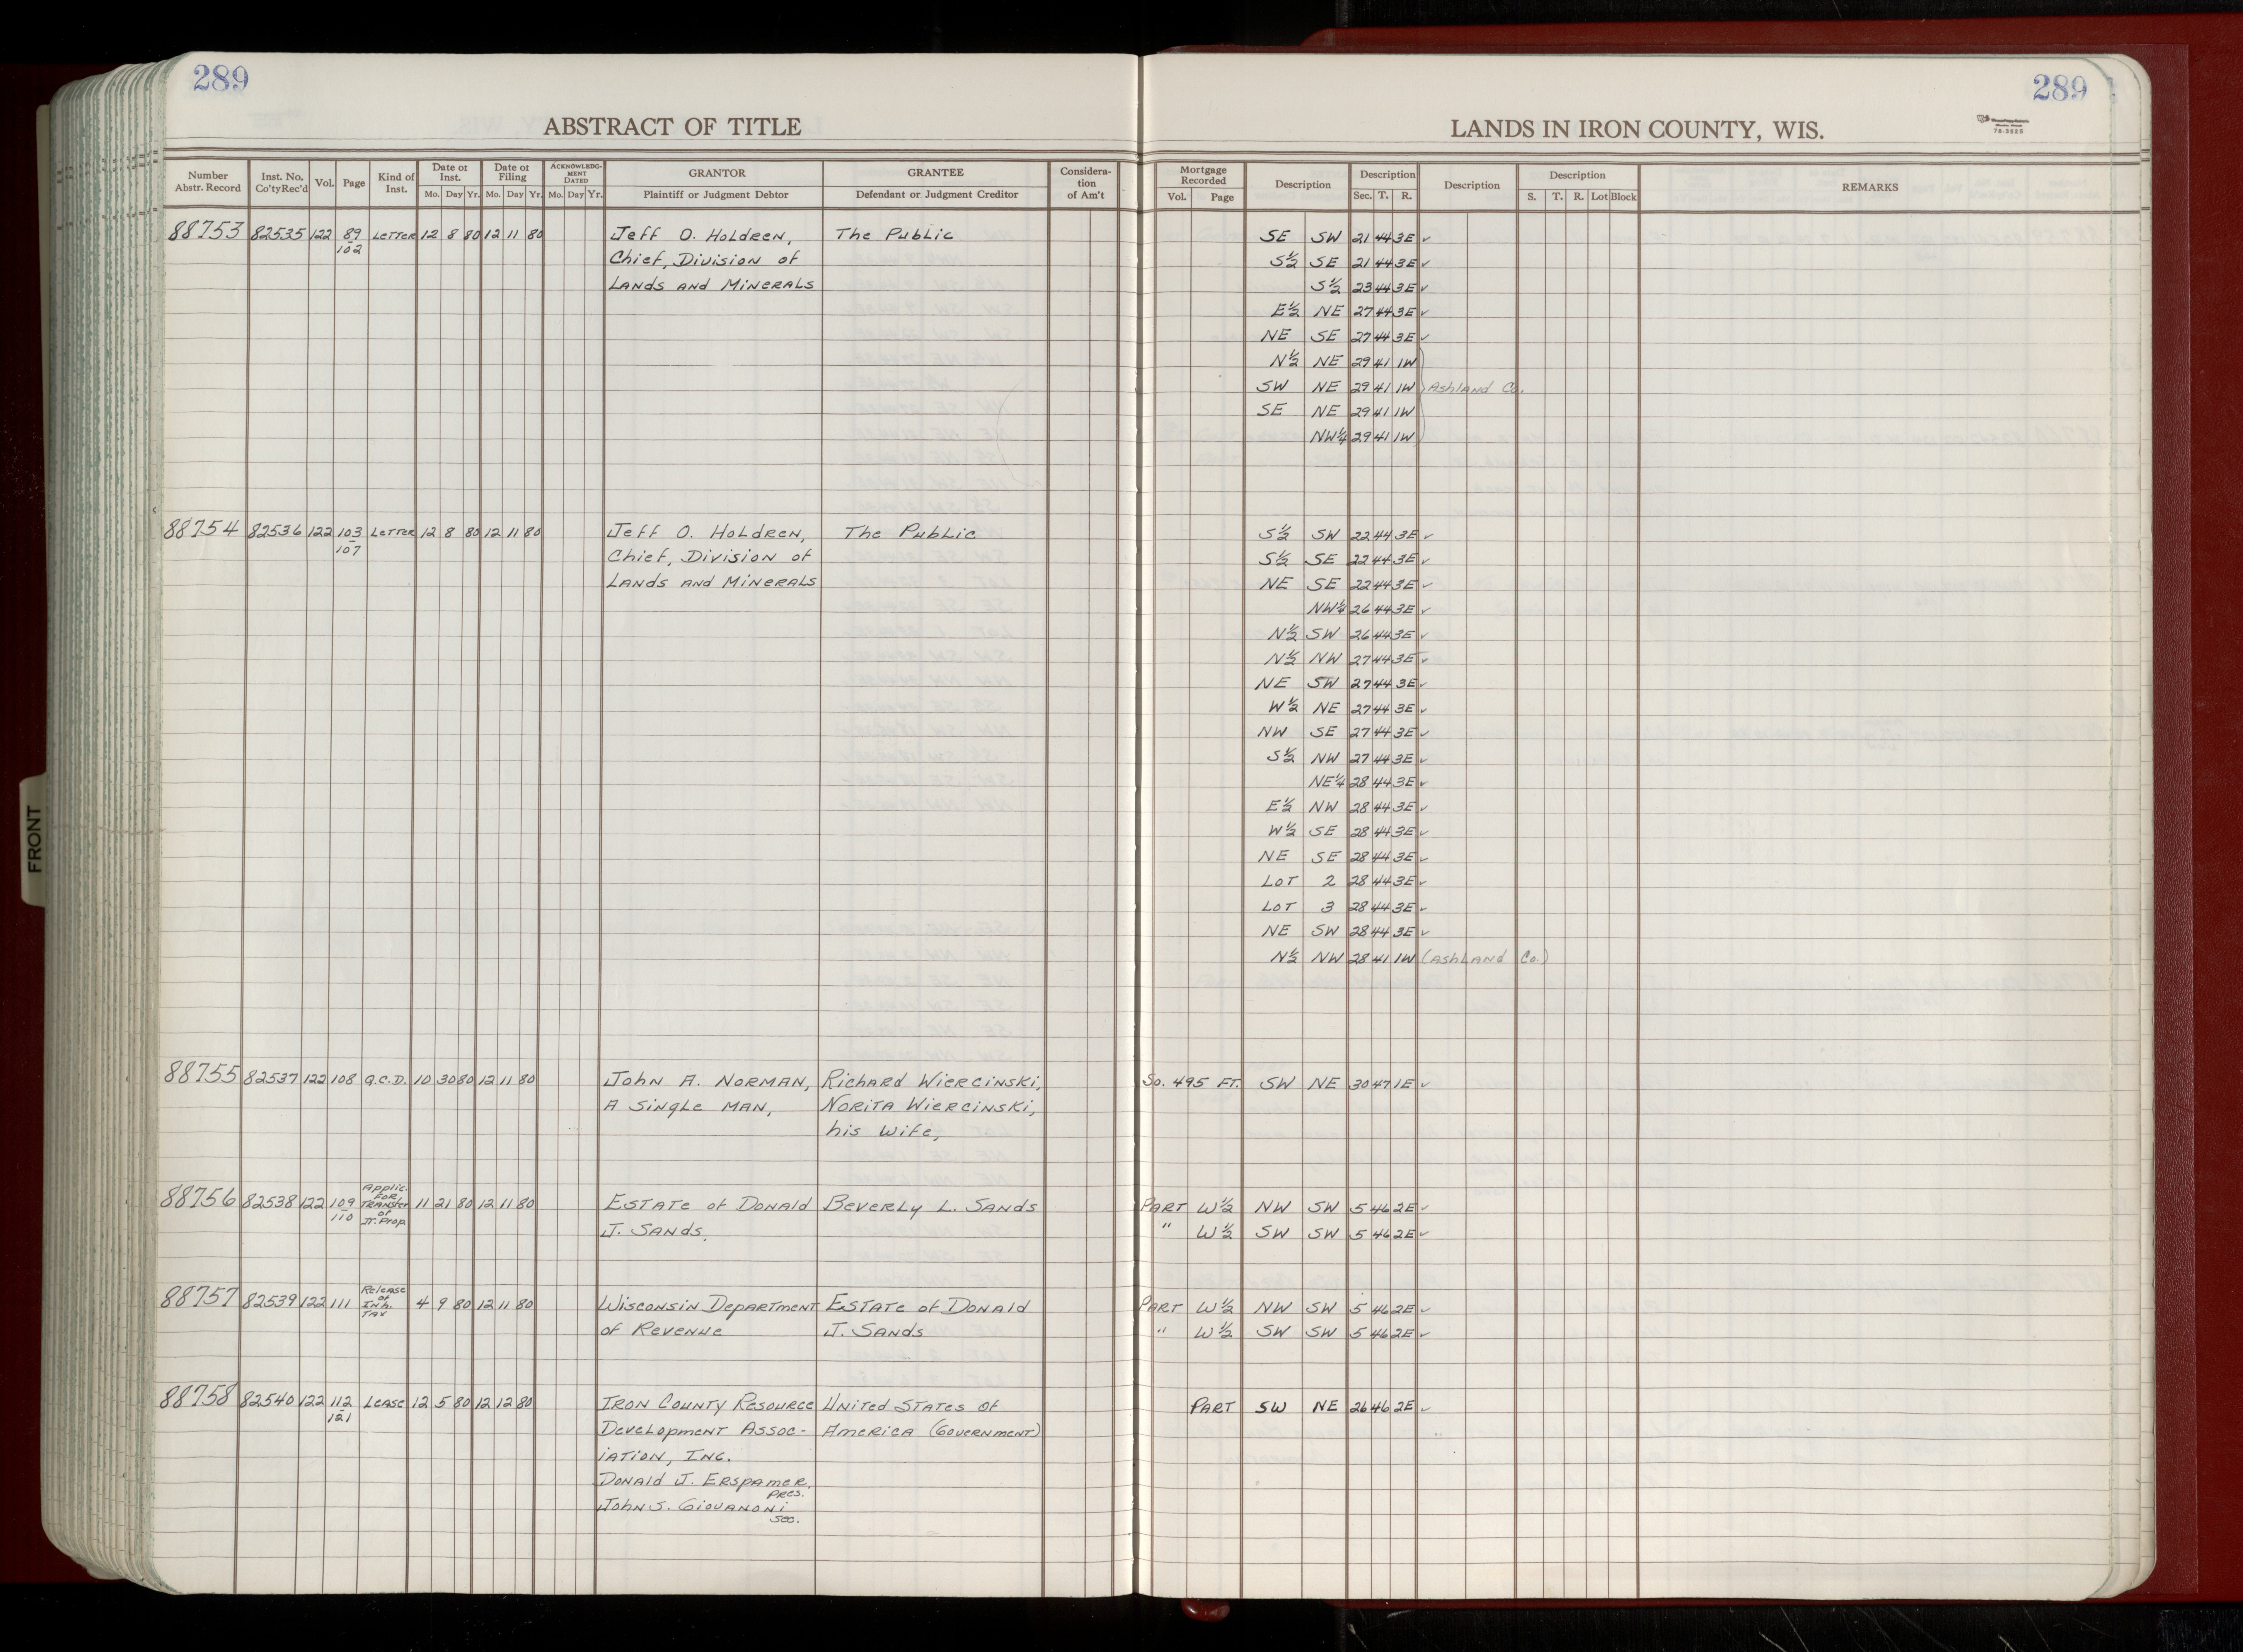 289
289
ABSTRACT OF TITLE
LANDS IN IRON COUNTY, WIS.
78-3525
Number Abstr. Record | Inst. No. Co'ty Rec'd | Vol. | Page | Kind of Inst. | Date of Inst. Mo. Day Yr. | Date of Filing Mo. Day Yr. | ACKNOWLEDGMENT DATED Mo. Day Yr. | GRANTOR Plaintiff or Judgment Debtor | GRANTEE Defendant or Judgment Creditor | Consideration of Am't | Mortgage Recorded Vol. Page | Description | Description Sec. T. R. | Description | Description S. T. R. Lot Block | REMARKS
88753 82535 122 89-102 Letter 12 8 80 12 11 80 Jeff O. Holdren, The Public SE SW 21 44 3E ✓
Chief, Division of S½ SE 21 44 3E ✓
Lands and Minerals S½ 23 44 3E ✓
E½ NE 27 44 3E ✓
NE SE 27 44 3E ✓
N½ NE 29 41 1W
SW NE 29 41 1W } Ashland Co.
SE NE 29 41 1W
NW¼ 29 41 1W
88754 82536 122 103-107 Letter 12 8 80 12 11 80 Jeff O. Holdren, The Public S½ SW 22 44 3E ✓
Chief, Division of S½ SE 22 44 3E ✓
Lands and Minerals NE SE 22 44 3E ✓
NW¼ 26 44 3E ✓
N½ SW 26 44 3E ✓
N½ NW 27 44 3E ✓
NE SW 27 44 3E ✓
W½ NE 27 44 3E ✓
NW SE 27 44 3E ✓
S½ NW 27 44 3E ✓
NE¼ 28 44 3E ✓
E½ NW 28 44 3E ✓
W½ SE 28 44 3E ✓
NE SE 28 44 3E ✓
Lot 2 28 44 3E ✓
Lot 3 28 44 3E ✓
NE SW 28 44 3E ✓
N½ NW 28 41 1W (Ashland Co.)
88755 82537 122 108 Q.C.D. 10 30 80 12 11 80 John A. Norman, Richard Wiercinski, So. 495 Ft. SW NE 30 47 1E ✓
A single man, Norita Wiercinski,
his wife,
88756 82538 122 109-110 Applic. for Transfer of Jt. Prop. 11 21 80 12 11 80 Estate of Donald Beverly L. Sands Part W½ NW SW 5 46 2E ✓
J. Sands, " W½ SW SW 5 46 2E ✓
88757 82539 122 111 Release of Inh. Tax 4 9 80 12 11 80 Wisconsin Department Estate of Donald Part W½ NW SW 5 46 2E ✓
of Revenue J. Sands " W½ SW SW 5 46 2E ✓
88758 82540 122 112-121 Lease 12 5 80 12 12 80 Iron County Resource United States of Part SW NE 26 46 2E ✓
Development Assoc- America (Government)
iation, Inc.
Donald J. Erspamer, Pres.
John S. Giovanoni Sec.
FRONT